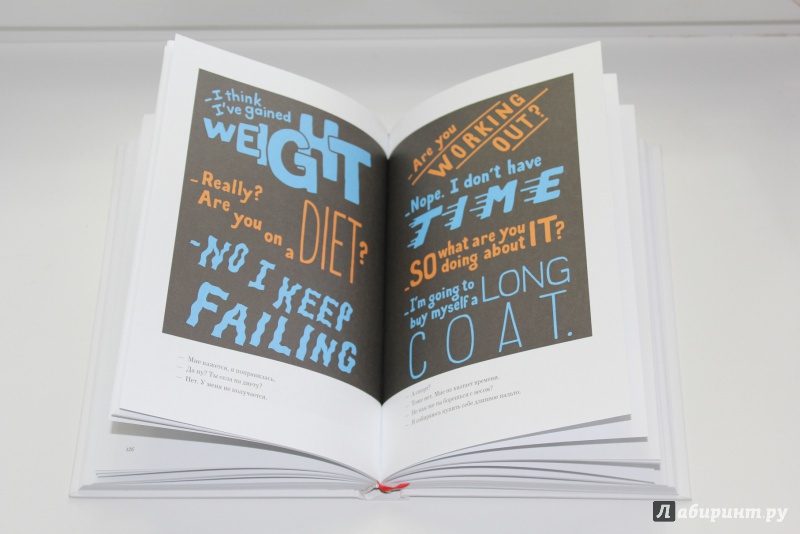 -I think
I've gained
WEIGHT
-Really?
Are you on a DIET?
-NO I KEEP
FAILING
— Мне кажется, я поправилась.
— Да ну? Ты села на диету?
— Нет. У меня не получается.
-Are you
WORKING
OUT?
-Nope. I don't have
TIME
-SO what are you
doing about IT?
-I'm going to
buy myself a LONG
COAT.
— А спорт?
— Тоже нет. Мне не хватает времени.
— Но как же ты борешься с весом?
— Я собираюсь купить себе длинное пальто.
Лабиринт.ру